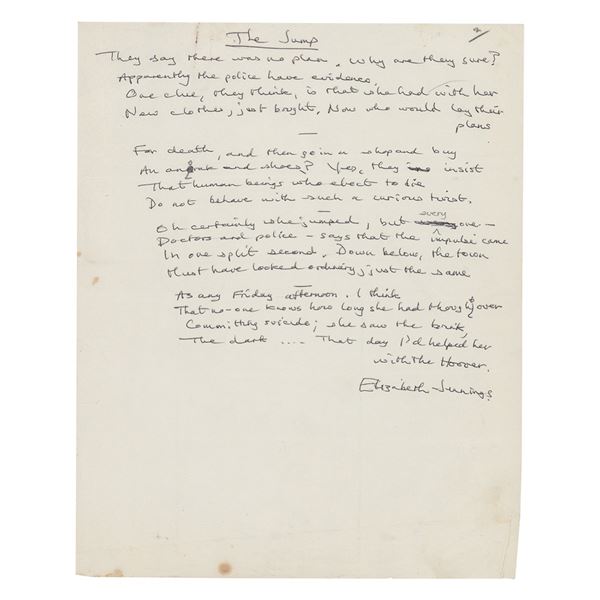 The Jump
They say there was no plan. Why are they sure?
Apparently the police have evidence.
One clue, they think, is that she had with her
New clothes, just bought. Now who would lay their
plans
For death, and then go in a shop and buy
An anorak and shoes? Yes, they insist
That human beings who elect to die
Do not behave with such a curious twist.
Oh certainly she jumped, but every one –
Doctors and police – says that the impulse came
In one split second. Down below, the town
Must have looked ordinary, just the same
As any Friday afternoon. I think
That no-one knows how long she had thought over
Committing suicide; she saw the brink,
The dark .... That day I'd helped her
with the Hoover.
Elizabeth Jennings